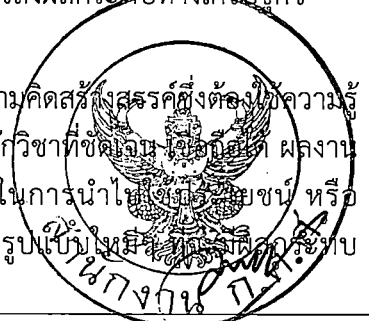 ามคิดสร้างสรรค์ซึ่งต้องใช้ความรู้
ักวิชาที่ชัดเจน เชื่อถือได้ ผลงาน
ในการนำไปใช้ประโยชน์ หรือ
รูปแบบใหม่ๆ
สำนักงาน ก.ค.ศ.